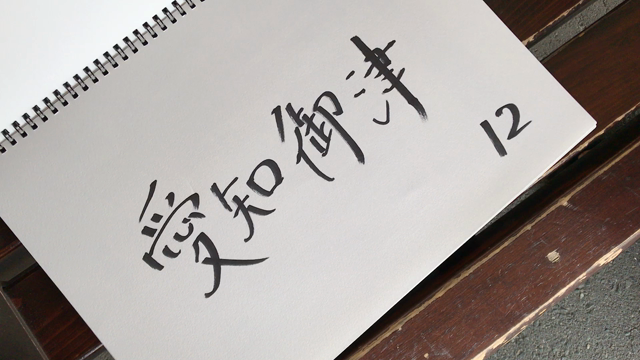 愛知御津
12